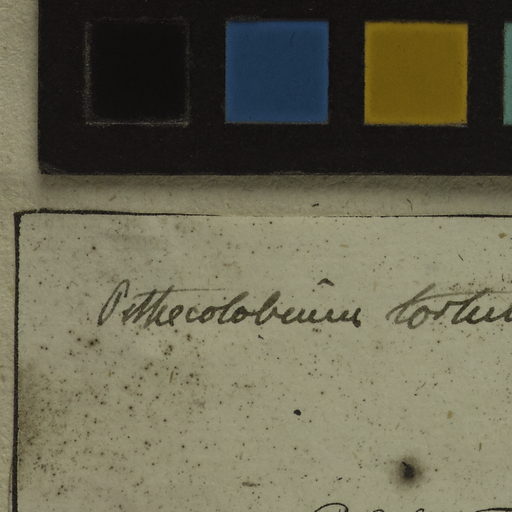 Pithecolobium tortu